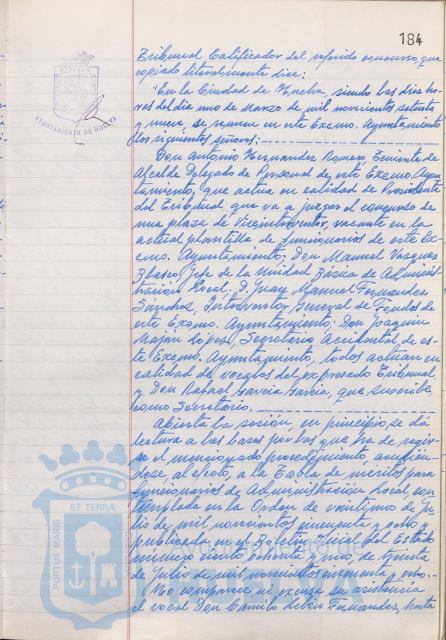 184
Tribunal Calificador del referido concurso, que
copiado literalmente dice:
"En la Ciudad de Huelva, siendo las diez ho-
ras del dia uno de Marzo de mil novecientos setenta
y nueve, se reunen en este Excmo. Ayuntamiento
los siguientes señores:
AYUNTAMIENTO DE HUELVA
Don Antonio Hernandez Romero, Teniente de
alcalde Delegado de Personal de este Excmo. Ayun-
tamiento, que actua en calidad de Presidente
del Tribunal que va a juzgar el concurso de
una plaza de Viceinterventor, vacante en la
actual plantilla de funcionarios de este Ex-
cmo. Ayuntamiento; Don Manuel Vazquez
Blasco, Jefe de la Unidad Básica de Adminis-
tración Local; D. Juan Manuel Fernandez
Sánchez, Interventor General de Fondos de
este Excmo. Ayuntamiento; Don Joaquin
López, Secretario Accidental de es-
te Excmo. Ayuntamiento, todos actuan en
calidad de vocales del expresado Tribunal
y Don Rafael Garcia Garcia, que suscribe
como Secretario.
Abierta la sesión, en principio se dá
lectura a las bases por las que ha de regir-
se el mencionado procedimiento, acudién-
dose, al efecto, a la Tabla de méritos para
funcionarios de Administración Local con-
templada en la Orden de veintiuno de ju-
lio de mil novecientos cincuenta y ocho
publicada en el Boletin Oficial del Estado
número ciento ochenta y uno, de treinta
de Julio de mil novecientos cincuenta y ocho.
No comparece ni excusa su asistencia
el vocal Don Camilo Fernandez, hasta
PORTUS MARIS ET TERRAE